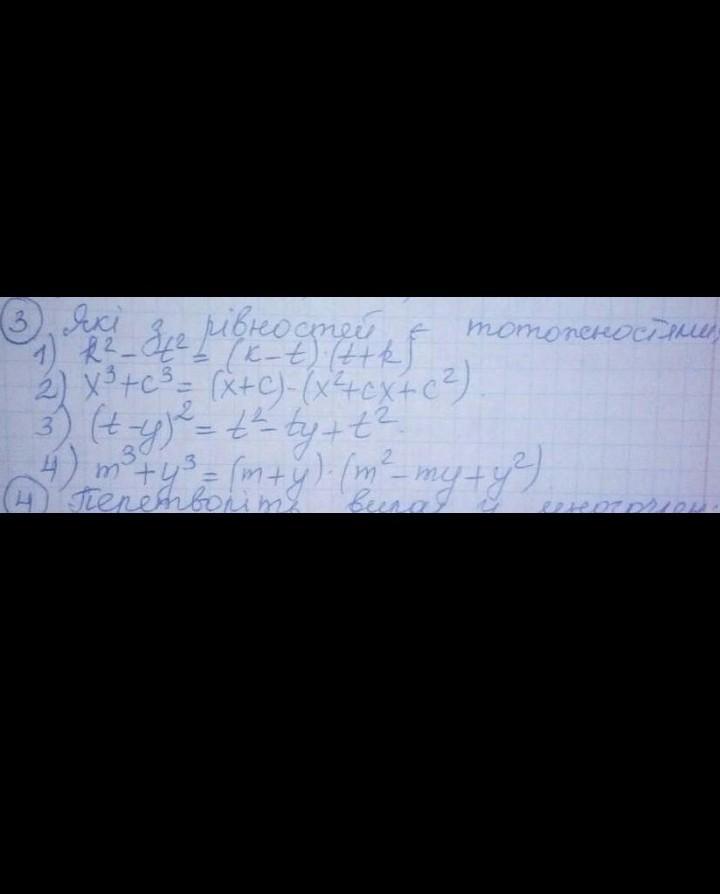 3 Які з рівностей є тотожностями
1) k² - t² = (k-t)·(t+k)
2) x³+c³ = (x+c)·(x²+cx+c²)
3) (t-y)² = t²-ty+t².
4) m³+y³ = (m+y)·(m²-my+y²)
4 Перетворіть вираз у многочлен: